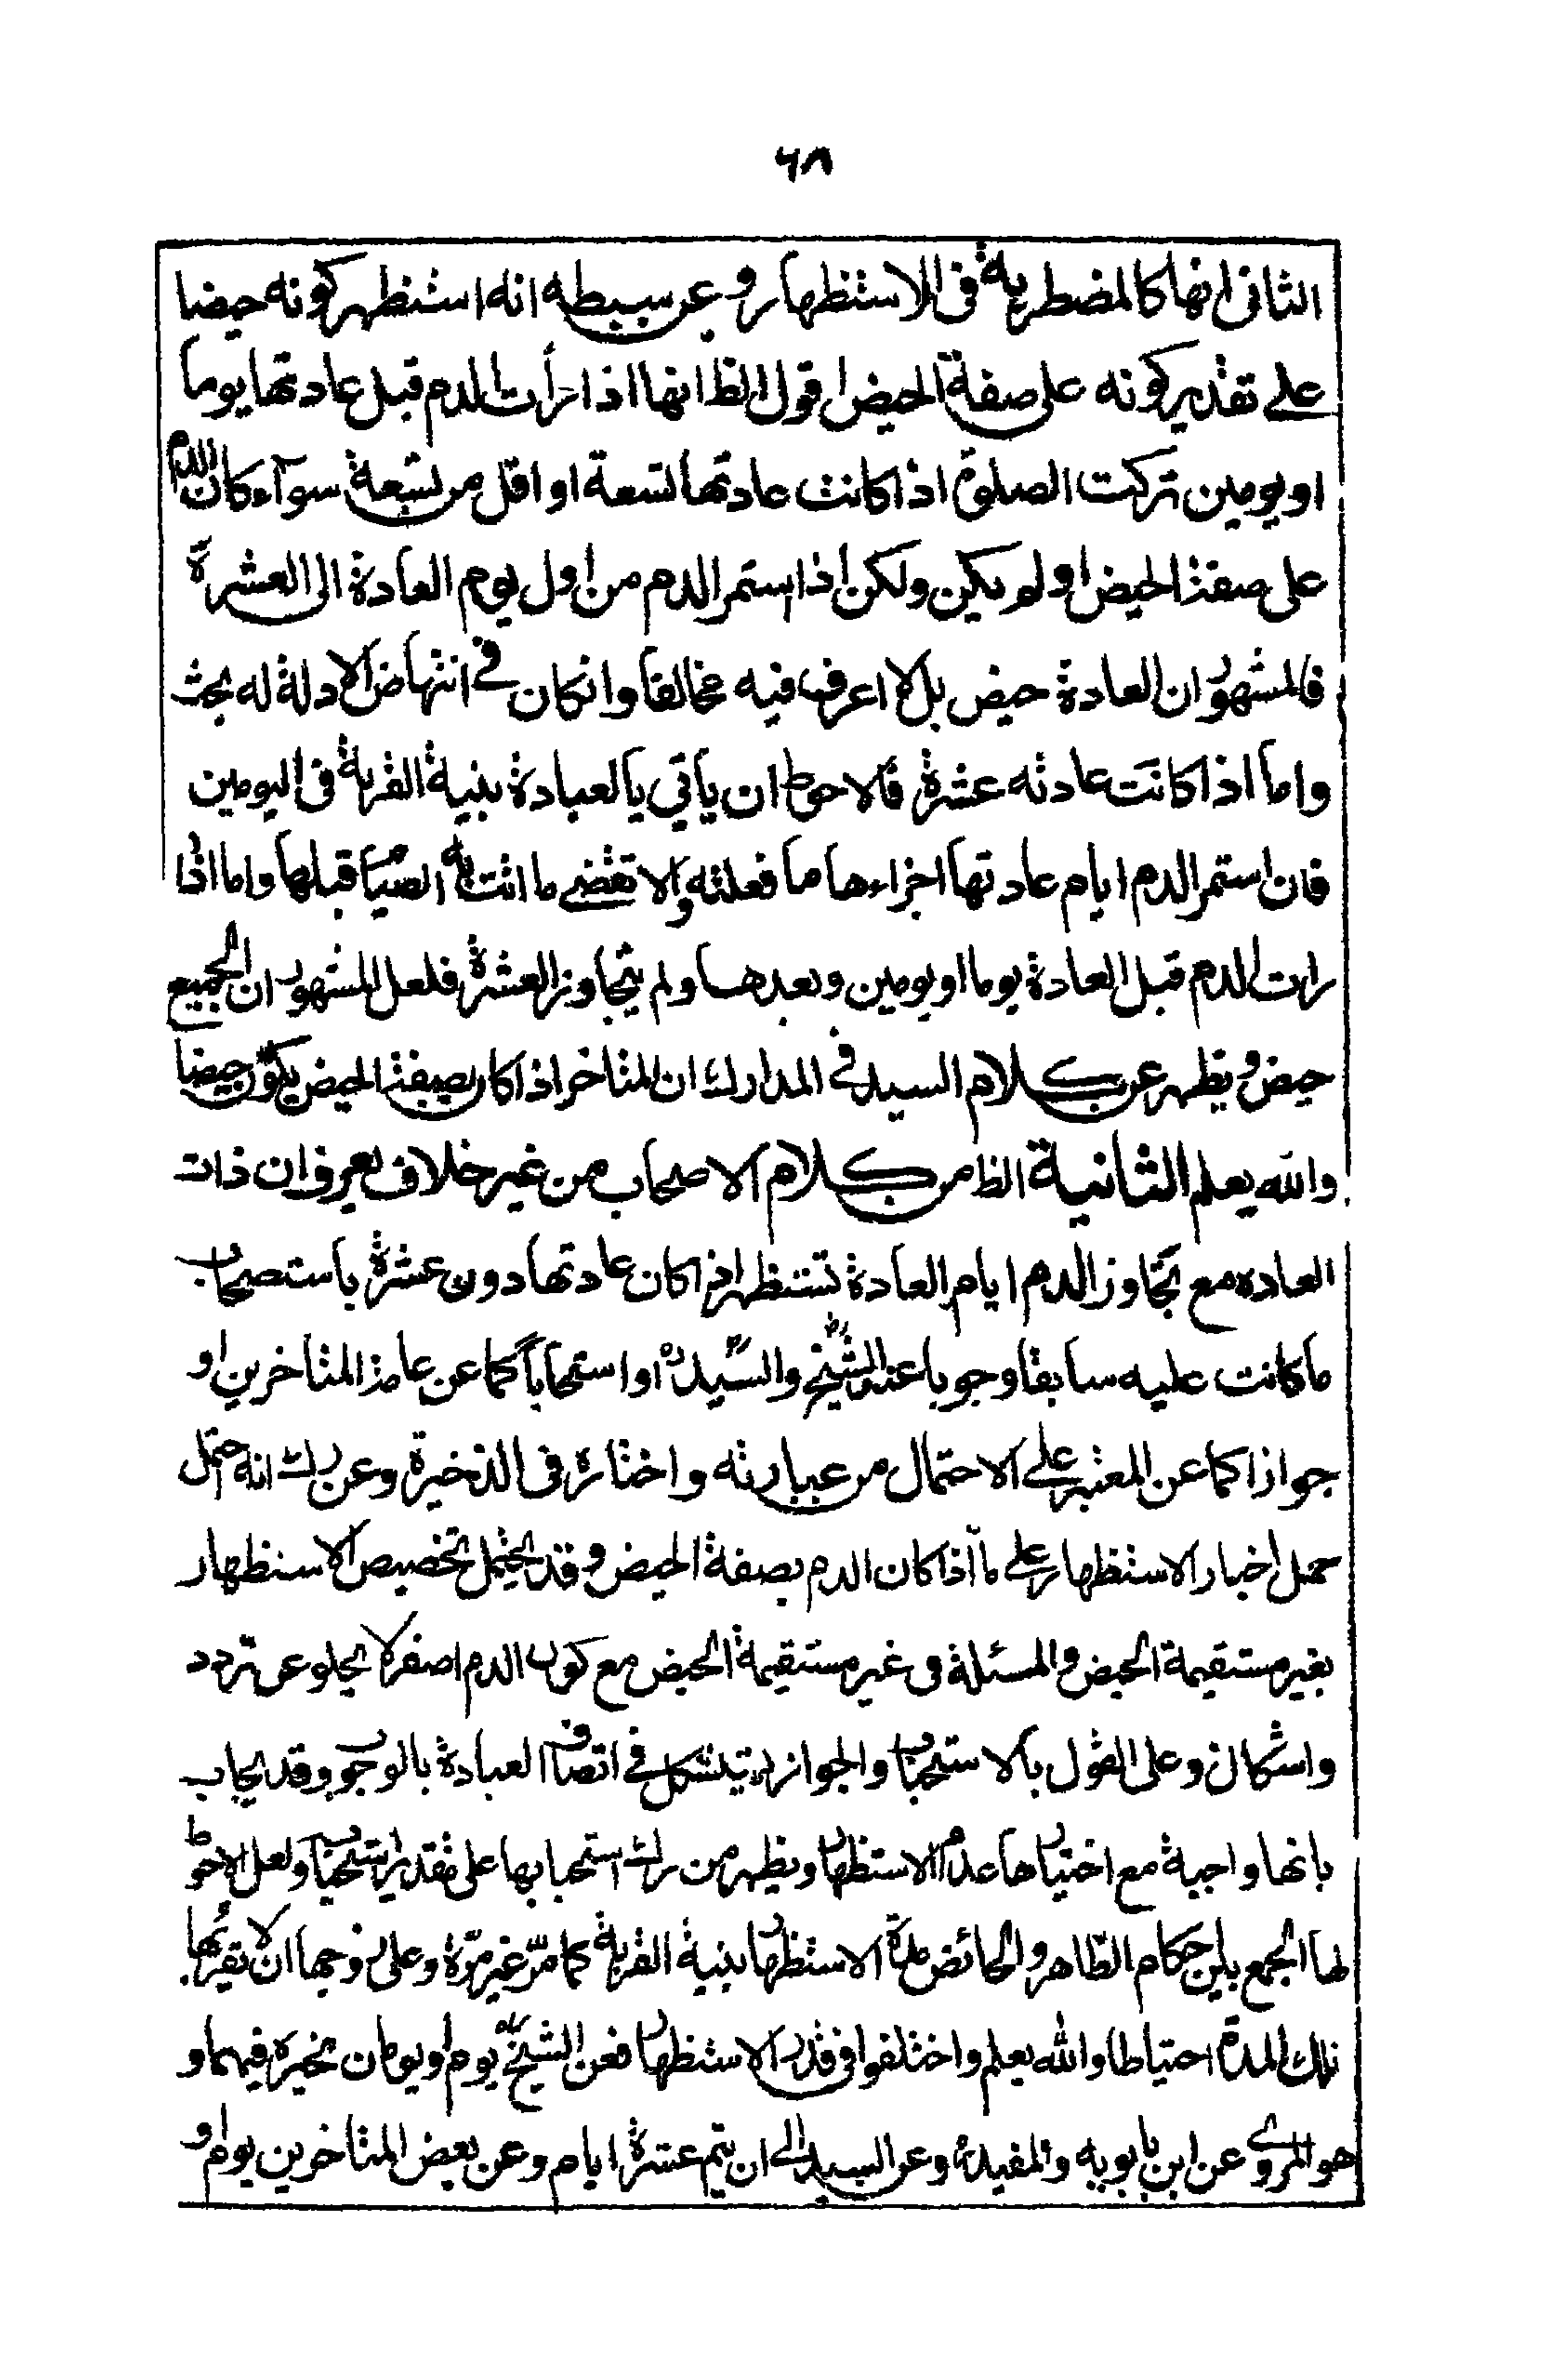 ٦٨
الثانى انها كالمضطربة فى الاستظهار وعن سبطه انه استظهر كونه حيضا
على تقدير كونه على صفة الحيض اقول الظ انها اذا رأت الدم قبل عادتها يوما
او يومين تركت الصلوة اذا كانت عادتها تسعة او اقل من تسعة سوآء كان الدم
على صفة الحيض او لم يكن ولكن اذا استمر الدم من اول يوم العادة الى العشرة
فالمشهور ان العادة حيض بل لا اعرف فيه مخالفا وانكان فى انتهاض الادلة له بحث
واما اذا كانت عادته عشرة فالاحوط ان يأتي بالعبادة بنية القربة فى اليومين
فان استمر الدم ايام عادتها اجزاءها ما فعلته والا تقضى ما اتت به الصيا قبلها واما اذا
رات الدم قبل العادة يوما او يومين وبعدها ولم يتجاوز العشرة فلعل المشهور ان الجميع
حيض ويظهر عن كلام السيد فى المدارك ان المتاخر اذا كان بصفة الحيض يكون حيضا
والله يعلم الثانية الظ من كلام الاصحاب من غير خلاف يعرف ان ذات
العاده مع تجاوز الدم ايام العادة تستظهر اذا كان عادتها دون عشرة باستصحاب
ما كانت عليه سابقا وجوبا عند الشيخ والسيد ره او استحبابا كما عن عامة المتاخرين او
جوازا كما عن المعتبر على الاحتمال من عبارته واختاره فى الذخيرة وعن رك انه احتمل
حمل اخبار الاستظهار على ما اذا كان الدم بصفة الحيض وقد يحتمل تخصيص الاستظهار
بغير مستقيمة الحيض والمسئلة فى غير مستقيمة الحيض مع كون الدم اصفر لا يخلو عن تردد
واشكال وعلى القول بالاستحبا والجواز يستشكل فى اتصاف العبادة بالوجوب وقد يجاب
بانها واجبة مع اختيارها عدم الاستظهار ويظهر من رك استحبابها على تقدير استحبا ولعل الاحوط
لها الجمع بين احكام الطاهر والحائض مدة الاستظهار بنية القربة كما مرّ غير مرّة وعلى زوجها ان لا يقربها
تلك المدة احتياطا والله يعلم واختلفوا فى قدر الاستظهار فعن الشيخ ره يوم او يومان مخيرة فيهما و
هو المروى عن ابن بابويه والمفيد ره وعن السيد الى ان يتم عشرة ايام وعن بعض المتاخرين يوم او